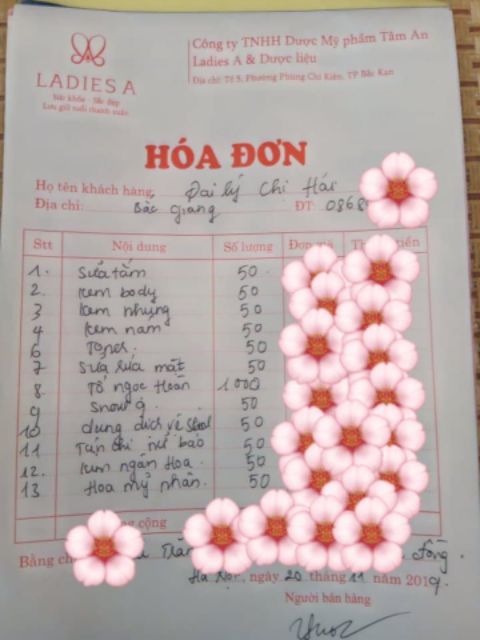 LADIES A
Sức khỏe - Sắc đẹp
Lưu giữ tuổi thanh xuân
Công ty TNHH Dược Mỹ phẩm Tâm An
Ladies A & Dược liệu
Địa chỉ: Tổ 5, Phường Phùng Chí Kiên, TP Bắc Kạn
HÓA ĐƠN
Họ tên khách hàng Đại lý Chi Hải
Địa chỉ: Bắc Giang ĐT: 0868
Stt Nội dung Số lượng Đơn
1. Sữa tắm 50
2. Kem body 50
3 Kem nhung 50
4 Kem nám 50
6 Toner 50
7 Sữa rửa mặt 50
8. Tố ngọc Hoàn 1000
9 Snow 50
10 dung dịch vệ sinh 50
11 Tán chỉ nữ bảo 50
12. Kem ngân Hoa 50
13 Hoa mỹ nhân 50
cộng
Bằng
Hà Nội, ngày 20 tháng 11 năm 2019
Người bán hàng